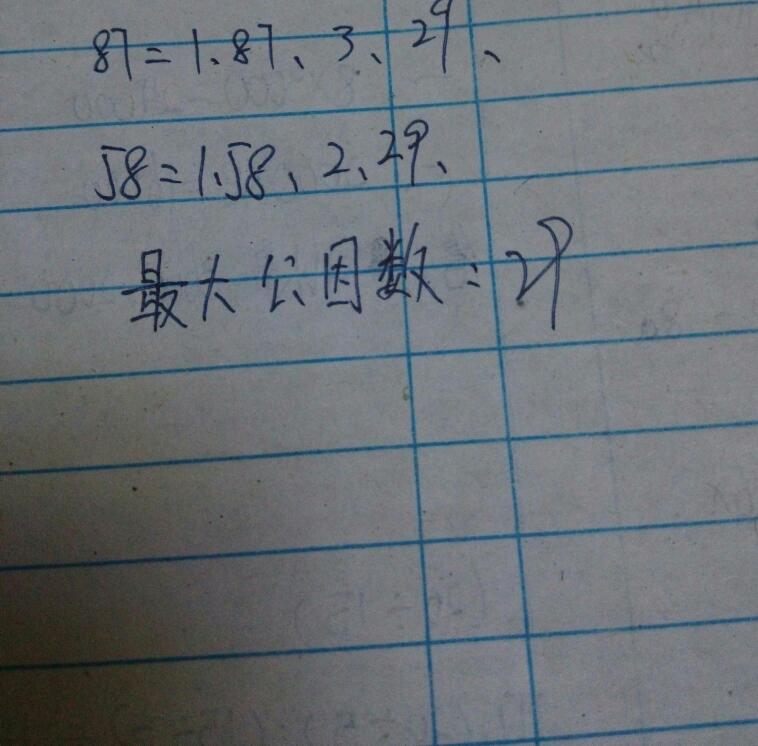 87=1、87、3、29、
58=1、58、2、29、
最大公因数:29